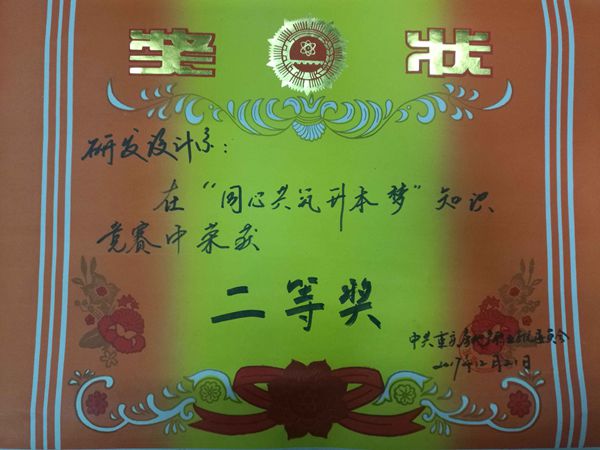 奖状
研发设计系：
在“同心共筑升本梦”知识
竞赛中荣获
二等奖
中共重庆房地产职业学院委员会
2017年12月21日